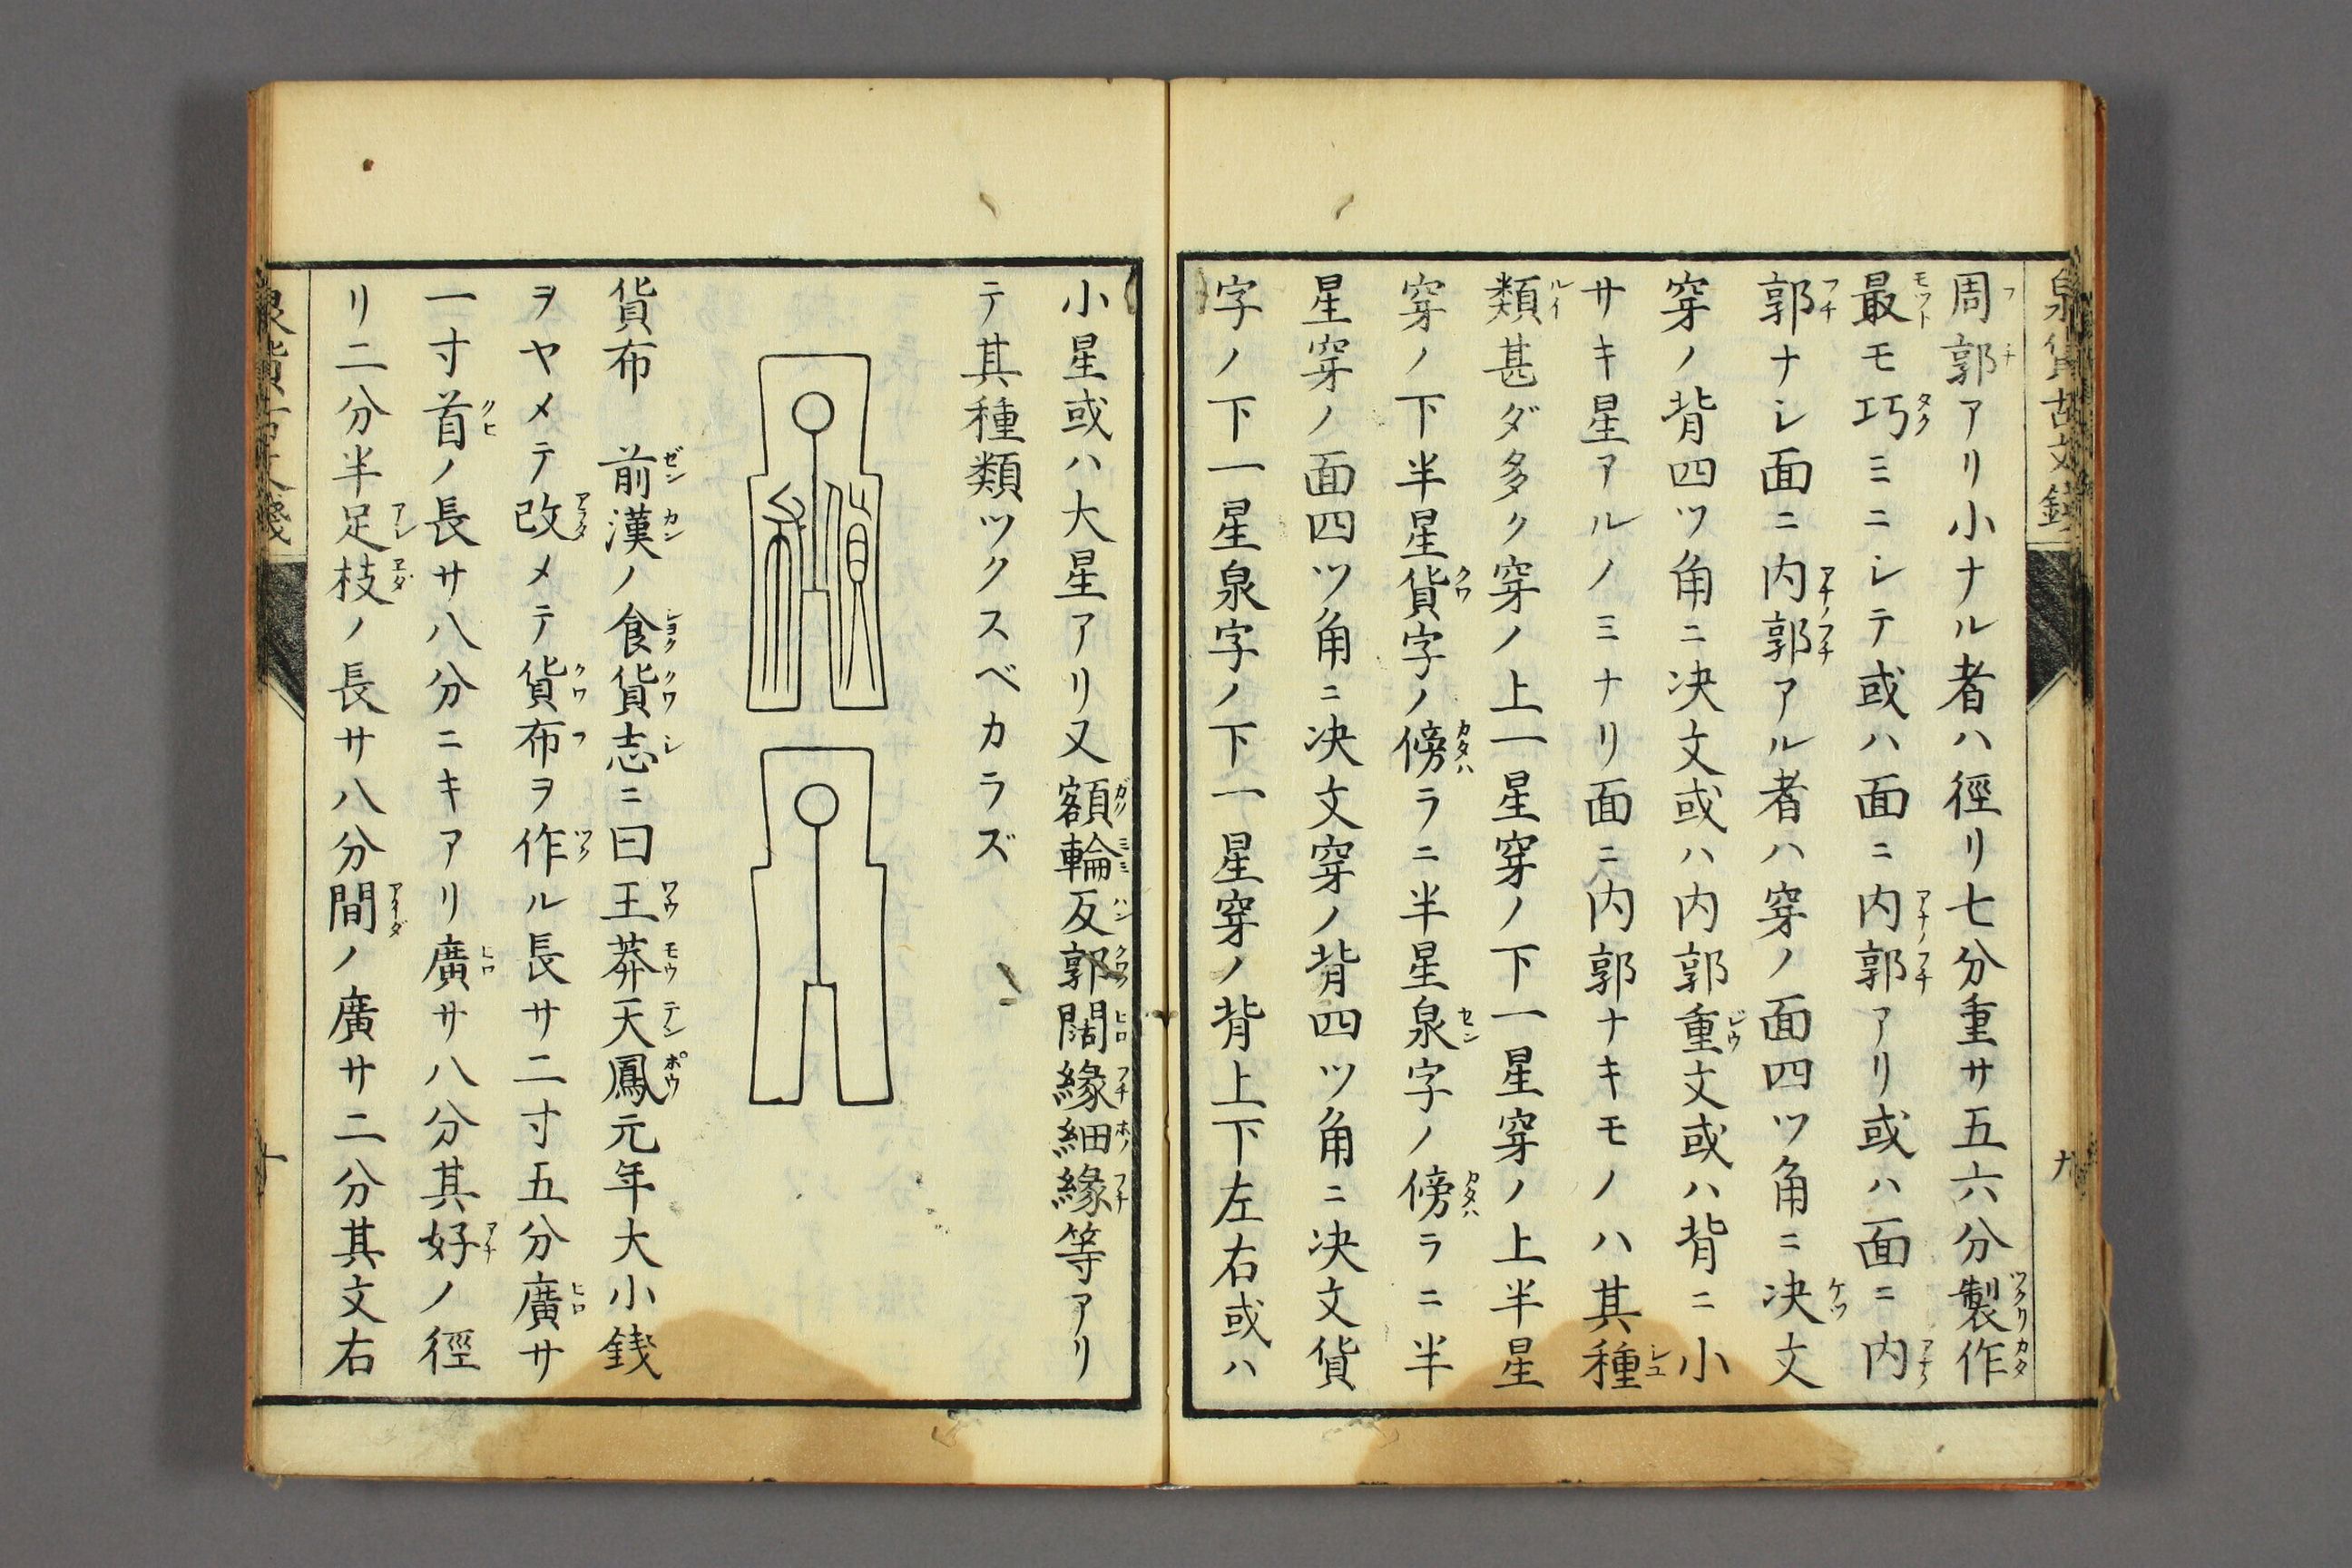 周郭アリ小ナル者ハ徑リ七分重サ五六分製作
最モ巧ミニシテ或ハ面ニ内郭アリ或ハ面ニ内
郭ナシ面ニ内郭アル者ハ穿ノ面四ツ角ニ决文
穿ノ背四ツ角ニ决文或ハ内郭重文或ハ背ニ小
サキ星アルノミナリ面ニ内郭ナキモノハ其種
類甚ダ多ク穿ノ上一星穿ノ下一星穿ノ上半星
穿ノ下半星貨字ノ傍ラニ半星泉字ノ傍ラニ半
星穿ノ面四ツ角ニ决文穿ノ背四ツ角ニ决文貨
字ノ下一星泉字ノ下一星穿ノ背上下左右或ハ
小星或ハ大星アリ又額輪反郭闊縁細縁等アリ
テ其種類ツクスベカラズ
貨布
貨布 前漢ノ食貨志ニ曰王莽天鳳元年大小銭
ヲヤメテ改メテ貨布ヲ作ル長サ二寸五分廣サ
一寸首ノ長サ八分ニキアリ廣サ八分其好ノ徑
リ二分半足枝ノ長サ八分間ノ廣サ二分其文右